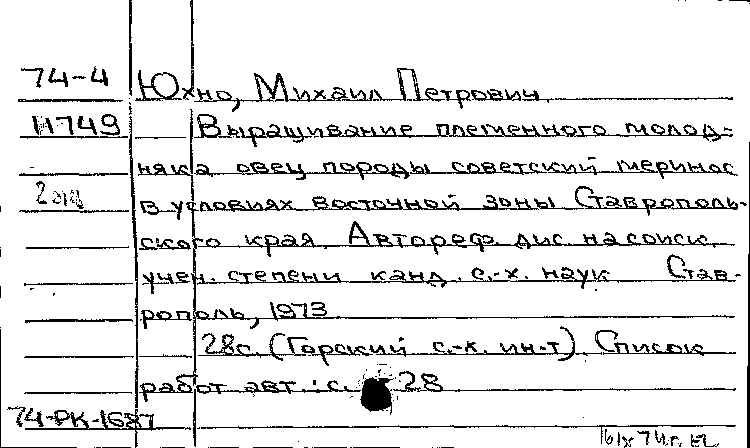 74-4
Юхно, Михаил Петрович.
11749
Выращивание племенного молод-
няка овец породы советский меринос
в условиях восточной зоны Ставрополь-
ского края. Автореф. дис. на соиск.
учен. степени канд. с.-х. наук. Став-
рополь, 1973.
28с. (Горский с.-х. ин-т). Список
работ авт.: с. 28
74-РК-1687